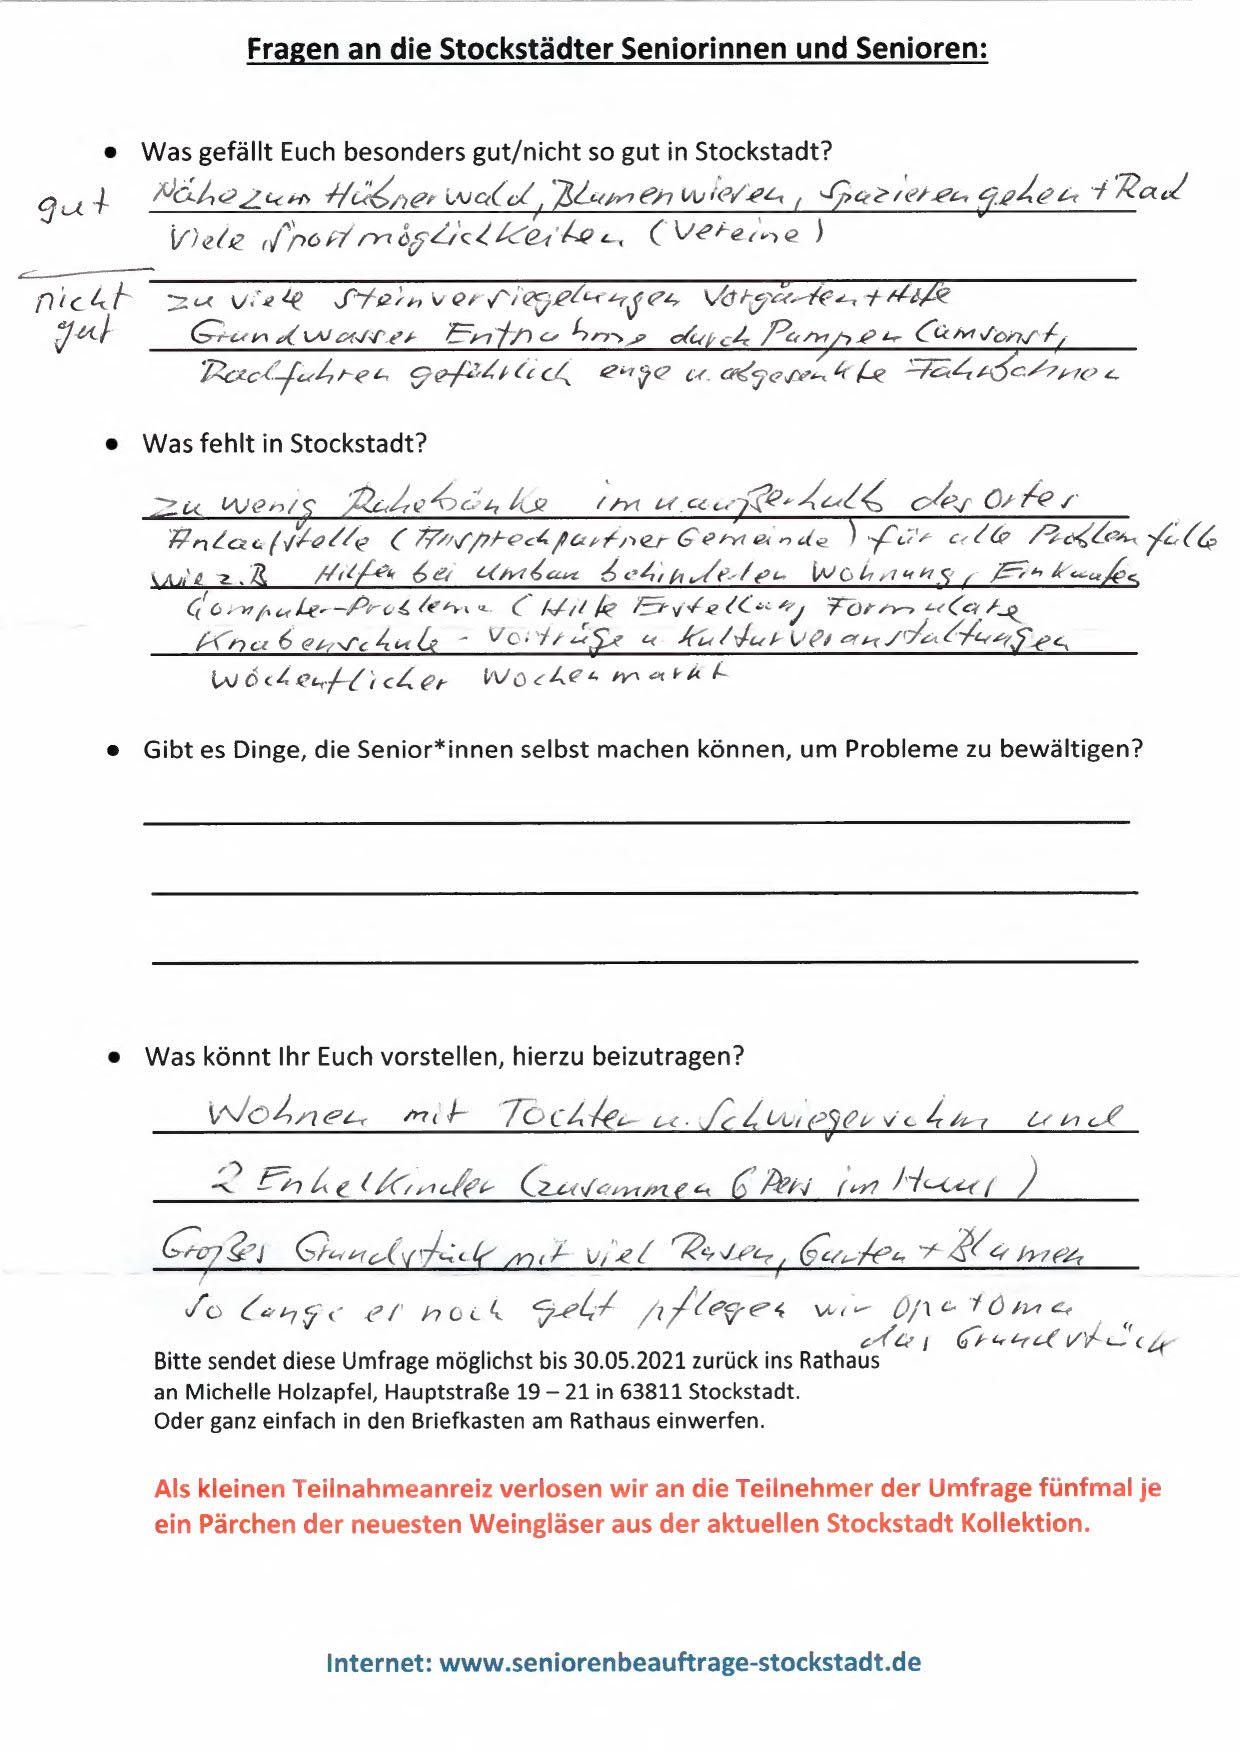 Fragen an die Stockstädter Seniorinnen und Senioren:
• Was gefällt Euch besonders gut/nicht so gut in Stockstadt?
gut Nähe zum Hübnerwald, Blumenwiesen, Spazierengehen + Rad
Viele Sportmöglichkeiten (Vereine)
nicht zu viele Steinversiegelungen Vorgärten + Höfe
gut Grundwasser Entnahme durch Pumpen (umsonst,
Radfahren gefährlich enge u. abgesenkte Fahrbahnen
• Was fehlt in Stockstadt?
zu wenig Ruhebänke im u. außerhalb des Ortes
Anlaufstelle (Ansprechpartner Gemeinde) für alle Problemfälle
wie z.B Hilfen bei Umbau behinderten Wohnung, Einkaufen
Computer-Probleme (Hilfe Erstellung Formulare
Knabenschule - Vorträge u Kulturveranstaltungen
wöchentlicher Wochenmarkt
• Gibt es Dinge, die Senior*innen selbst machen können, um Probleme zu bewältigen?
• Was könnt Ihr Euch vorstellen, hierzu beizutragen?
Wohnen mit Tochter u. Schwiegersohn und
2 Enkelkinder (zusammen 6 Pers im Haus)
Großes Grundstück mit viel Rasen, Garten + Blumen
so lange es noch geht pflegen wir Opa + Oma
das Grundstück
Bitte sendet diese Umfrage möglichst bis 30.05.2021 zurück ins Rathaus
an Michelle Holzapfel, Hauptstraße 19 – 21 in 63811 Stockstadt.
Oder ganz einfach in den Briefkasten am Rathaus einwerfen.
Als kleinen Teilnahmeanreiz verlosen wir an die Teilnehmer der Umfrage fünfmal je
ein Pärchen der neuesten Weingläser aus der aktuellen Stockstadt Kollektion.
Internet: www.seniorenbeauftrage-stockstadt.de